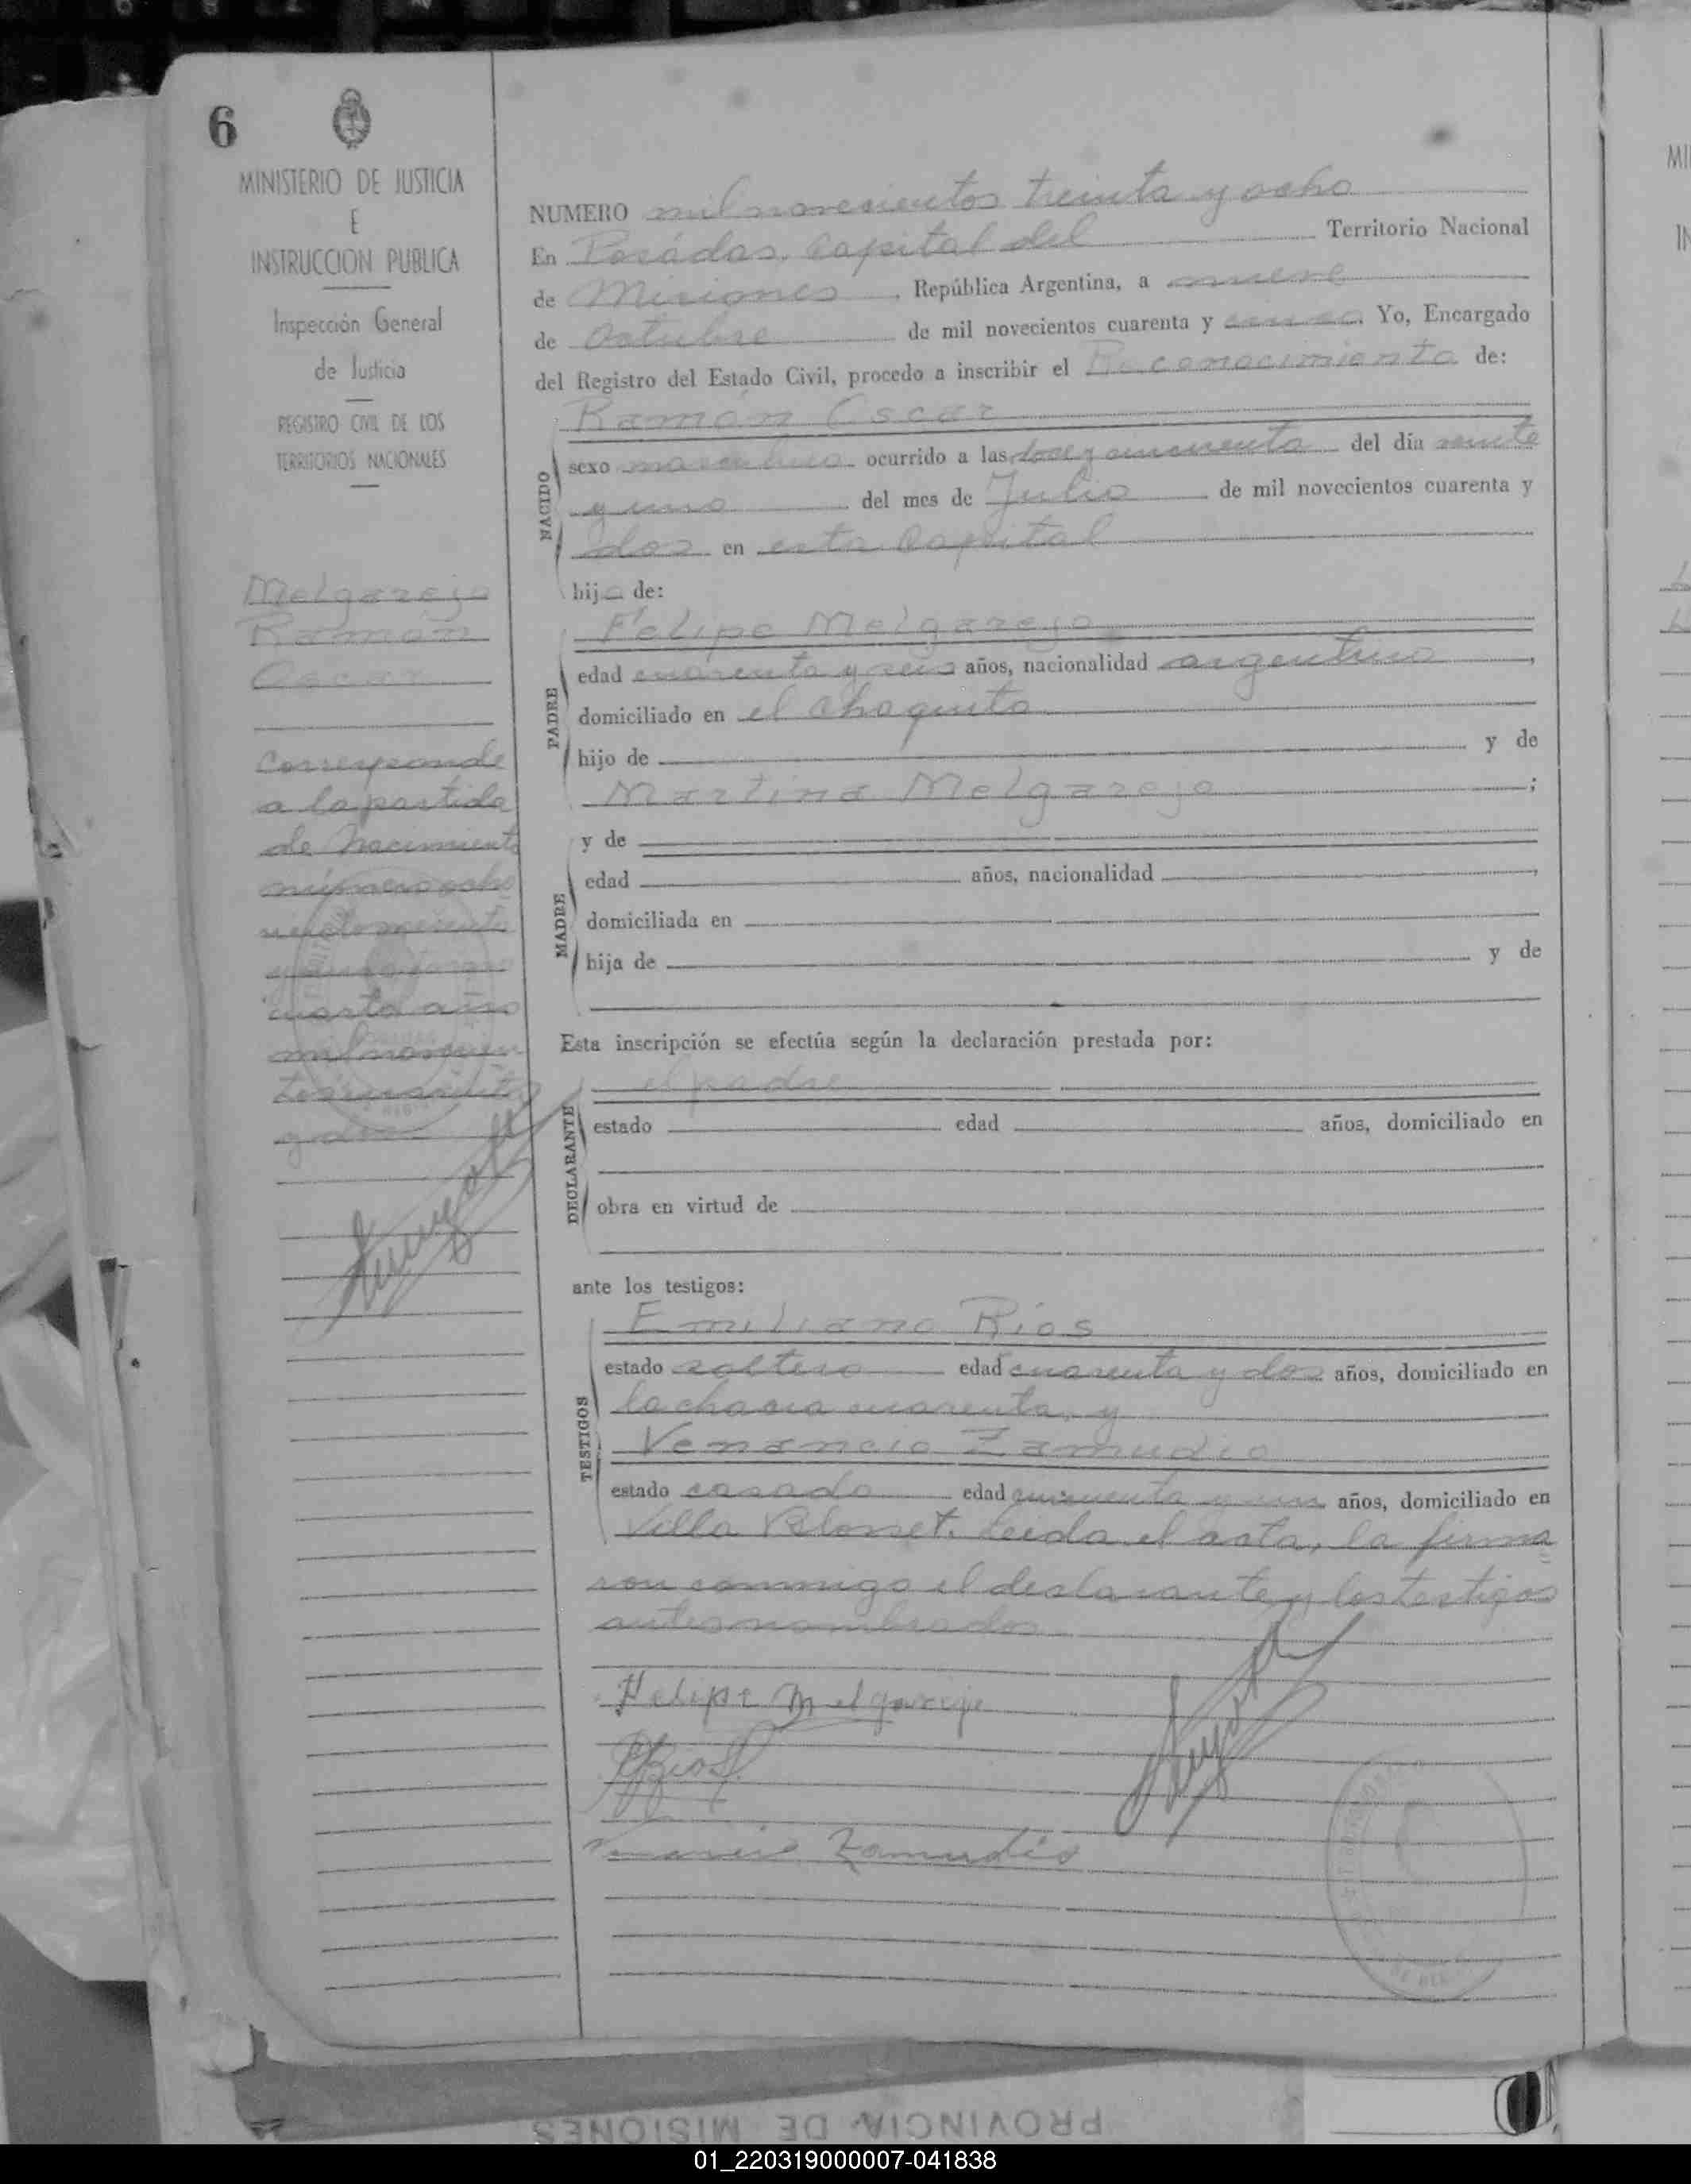 6
MINISTERIO DE JUSTICIA
E
INSTRUCCION PUBLICA
Inspección General
de Justicia
REGISTRO CIVIL DE LOS
TERRITORIOS NACIONALES
Melgarejo
Ramón
Oscar
Corresponde
a la partida
de Nacimiento
número ocho
cuarto año
mil novecien
tos cuarenta
y dos
NUMERO mil novecientos treinta y ocho
En Posadas, Capital del Territorio Nacional
de Misiones, República Argentina, a nueve
de Octubre de mil novecientos cuarenta y cinco. Yo, Encargado
del Registro del Estado Civil, procedo a inscribir el Reconocimiento de:
Ramón Oscar
NACIDO
sexo masculino ocurrido a las doce y cincuenta del día veinte
y uno del mes de Julio de mil novecientos cuarenta y
dos en esta Capital
hijo de:
Felipe Melgarejo
PADRE
edad cuarenta y seis años, nacionalidad argentino,
domiciliado en el Chaquito
hijo de y de
Martina Melgarejo ;
y de
MADRE
edad años, nacionalidad ,
domiciliada en
hija de y de
Esta inscripción se efectúa según la declaración prestada por:
el padre
DECLARANTE
estado edad años, domiciliado en
obra en virtud de
ante los testigos:
Emiliano Ríos
TESTIGOS
estado soltero edad cuarenta y dos años, domiciliado en
la chacra cuarenta, y
Venancio Zamudio
estado casado edad cincuenta y un años, domiciliado en
Villa Blosset. Leida el acta, la firma
ron conmigo el declarante y los testigos
antes nombrados
Felipe Melgarejo
ERios
Venancio Zamudio
PROVINCIA DE MISIONES
01_220319000007-041838